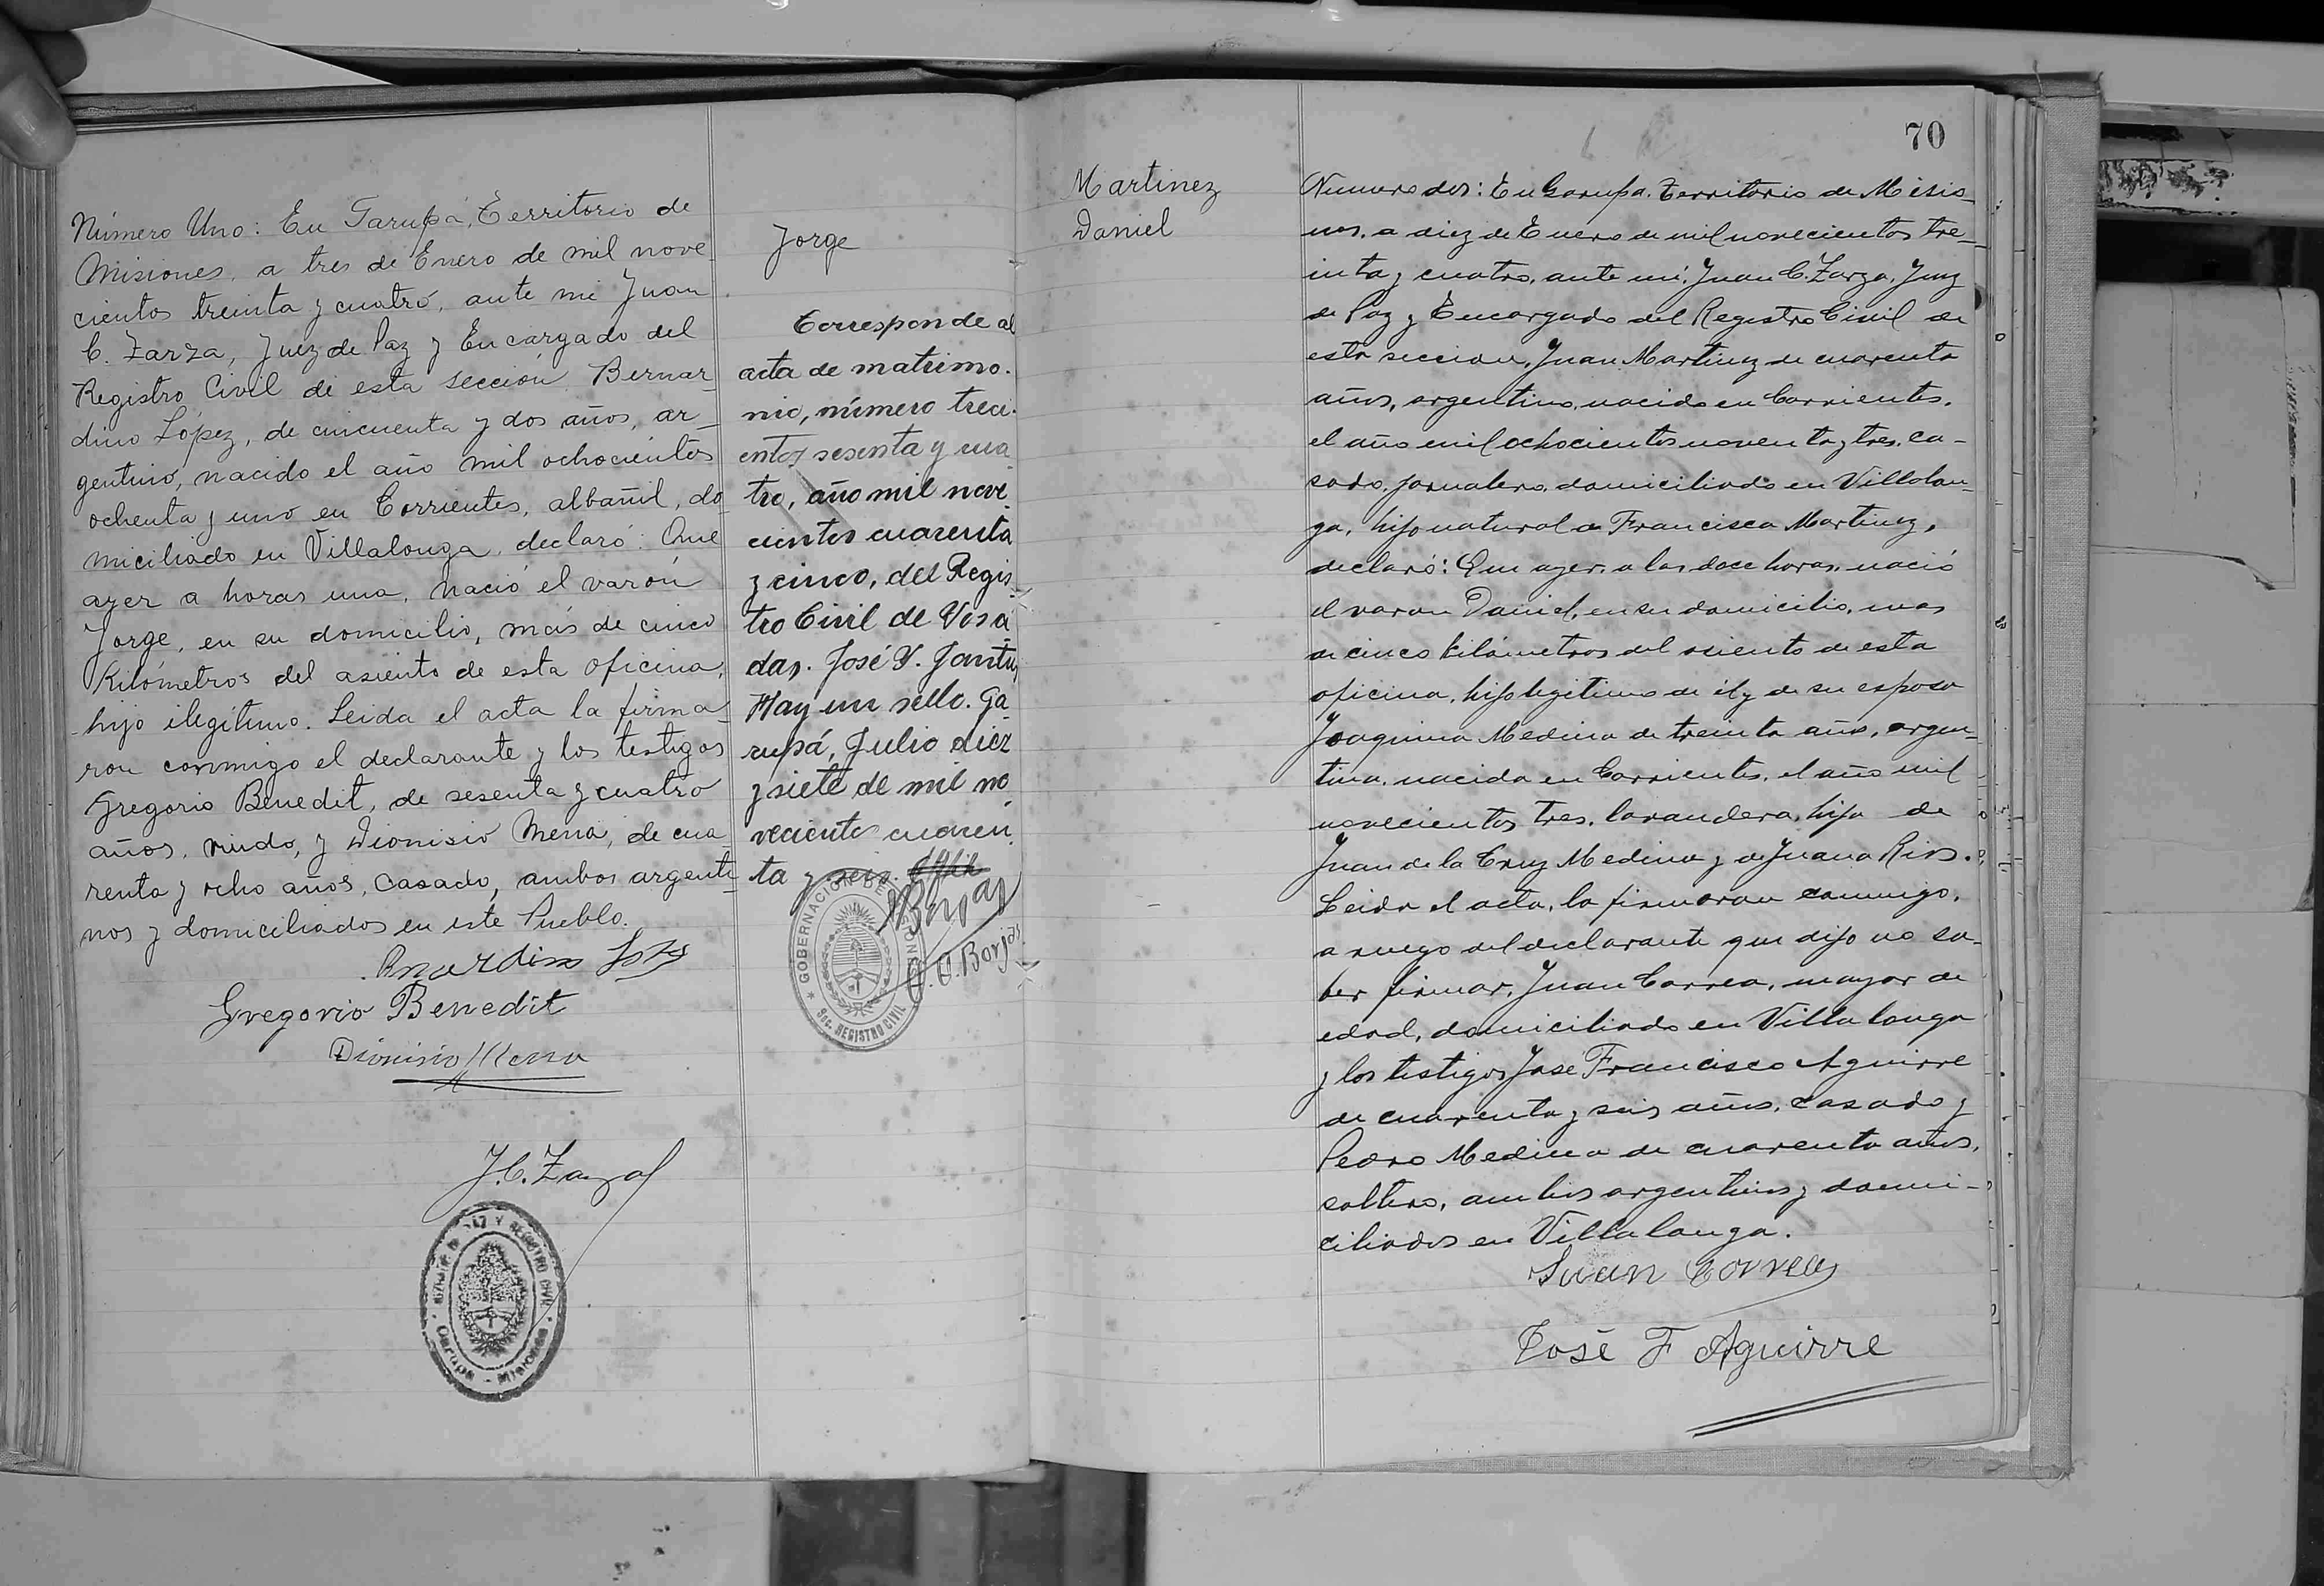 Número Uno: En Garupá, Territorio de
Misiones, a tres de Enero de mil nove_
cientos treinta y cuatro, ante mi Juan
C. Zarza, Juez de Paz y Encargado del
Registro Civil de esta sección Bernar_
dino López, de cincuenta y dos años, ar_
gentino, nacido el año mil ochocientos
ochenta y uno en Corrientes, albañil, do_
miciliado en Villalonga, declaró: Que
ayer a horas una, nació el varón
Jorge, en su domicilio, más de cinco
Kilómetros del asiento de esta oficina,
hijo ilegítimo. Leida el acta la firma_
ron conmigo el declarante y los testigos
Gregorio Benedit, de sesenta y cuatro
años, viudo, y Dionisio Mena, de cua_
renta y ocho años, casado, ambos argenti_
nos y domiciliados en este Pueblo.
Gregorio Benedit
Dionisio Mena
J. C. Zarza
Jorge
Corresponde al
acta de matrimo.
nio, número treci.
entos sesenta y cua
tro, año mil nove
cientos cuarenta
y cinco, del Regis_
tro Civil de Posa
das. José V. Jantus
Hay un sello. Ga
rupá, Julio diez
y siete de mil no
vecientos cuaren_
ta y seis.
GOBERNACION DE MISIONES
Sec. REGISTRO CIVIL
Borjas
Martinez
Daniel
70
Numero dos: En Garupa, Territorio de Misio_
nes, a diez de Enero de mil novecientos tre_
inta y cuatro, ante mi, Juan C. Zarza, Juez
de Paz y Encargado del Registro Civil de
esta seccion, Juan Martinez de cuarenta
años, argentino, nacido en Corrientes,
el año mil ochocientos noventa y tres, ca_
sado, jornalero, domiciliado en Villalon_
ga, hijo natural de Francisca Martinez,
declaró: Que ayer, a las doce horas, nació
el varon Daniel, en su domicilio, mas
de cinco kilómetros del asiento de esta
oficina, hijo legitimo de él y de su esposa
Joaquina Medina de treinta años, argen_
tina, nacida en Corrientes, el año mil
novecientos tres, lavandera, hija de
Juan de la Cruz Medina y de Juana Rios.
Leida el acta, la firmaron conmigo,
a ruego del declarante que dijo no sa_
ber firmar, Juan Correa, mayor de
edad, domiciliado en Villalonga
y los testigos Jose Francisco Aguirre
de cuarenta y seis años, casado y
Pedro Medina de cuarenta años,
soltero, ambos argentinos y domi_
ciliados en Villalonga.
Juan Correa
José F Aguirre